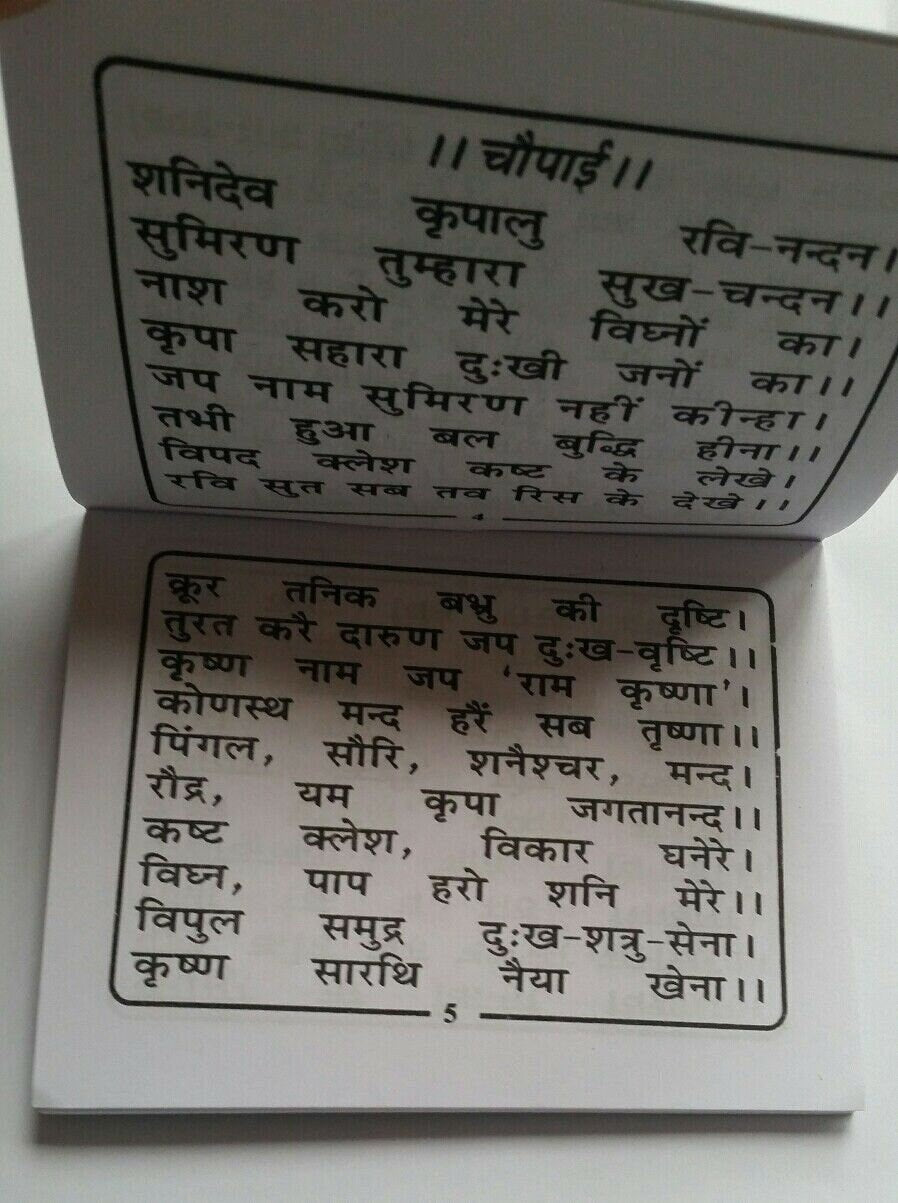 ।। चौपाई।।
शनिदेव कृपालु रवि-नन्दन।
सुमिरण तुम्हारा सुख-चन्दन।।
नाश करो मेरे विघ्नों का।
कृपा सहारा दुःखी जनों का।।
जप नाम सुमिरण नहीं कीन्हा।
तभी हुआ बल बुद्धि हीना।।
विपद क्लेश कष्ट के लेखे।
रवि सुत सब तव रिस के देखे।।
4
क्रूर तनिक बभ्रु की दृष्टि।
तुरत करै दारुण जप दुःख-वृष्टि।।
कृष्ण नाम जप ‘राम कृष्णा’।
कोणस्थ मन्द हरैं सब तृष्णा।।
पिंगल, सौरि, शनैश्चर, मन्द।
रौद्र, यम कृपा जगतानन्द।।
कष्ट क्लेश, विकार घनेरे।
विघ्न, पाप हरो शनि मेरे।।
विपुल समुद्र दुःख-शत्रु-सेना।
कृष्ण सारथि नैया खेना।।
5